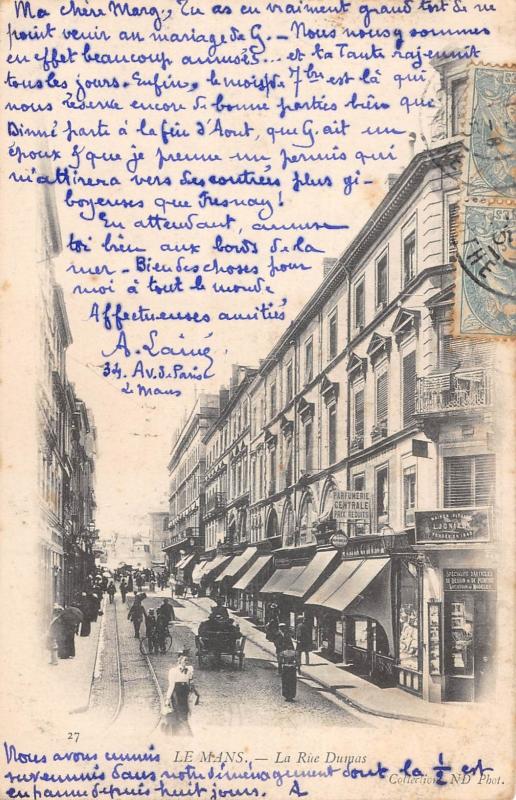 Ma chère Marg., Tu as eu vraiment grand tort de ne
point venir au mariage de G. - Nous nous y sommes
en effet beaucoup amusés... et la Tante rajeunit
tous les jours. Enfin, le mois de 7bre est là qui
nous réserve encore de bonne parties bien que
Dinné parte à la fin d'Aout, que G. ait un
époux & que je prenne un permis qui
m'attirera vers des contrées plus gi-
boyeuses que Fresnay!
En attendant, amuse
toi bien aux bords de la
mer - Bien des choses pour
moi à tout le monde
Affectueuses amitiés
A. Lainé
34, Av. de Paris
Le Mans
PARFUMERIE
CENTRALE
PRIX RÉDUITS
MAISON
L. JONIAUX
SPÉCIALITÉ D'ARTICLES
DE DESSIN & DE PEINTURE
LOCATION DE MODÈLES
27
LE MANS. — La Rue Dumas
Collections ND Phot.
Nous avons commis
survenus dans notre déménagement dont la ½ est
en panne depuis huit jours. A